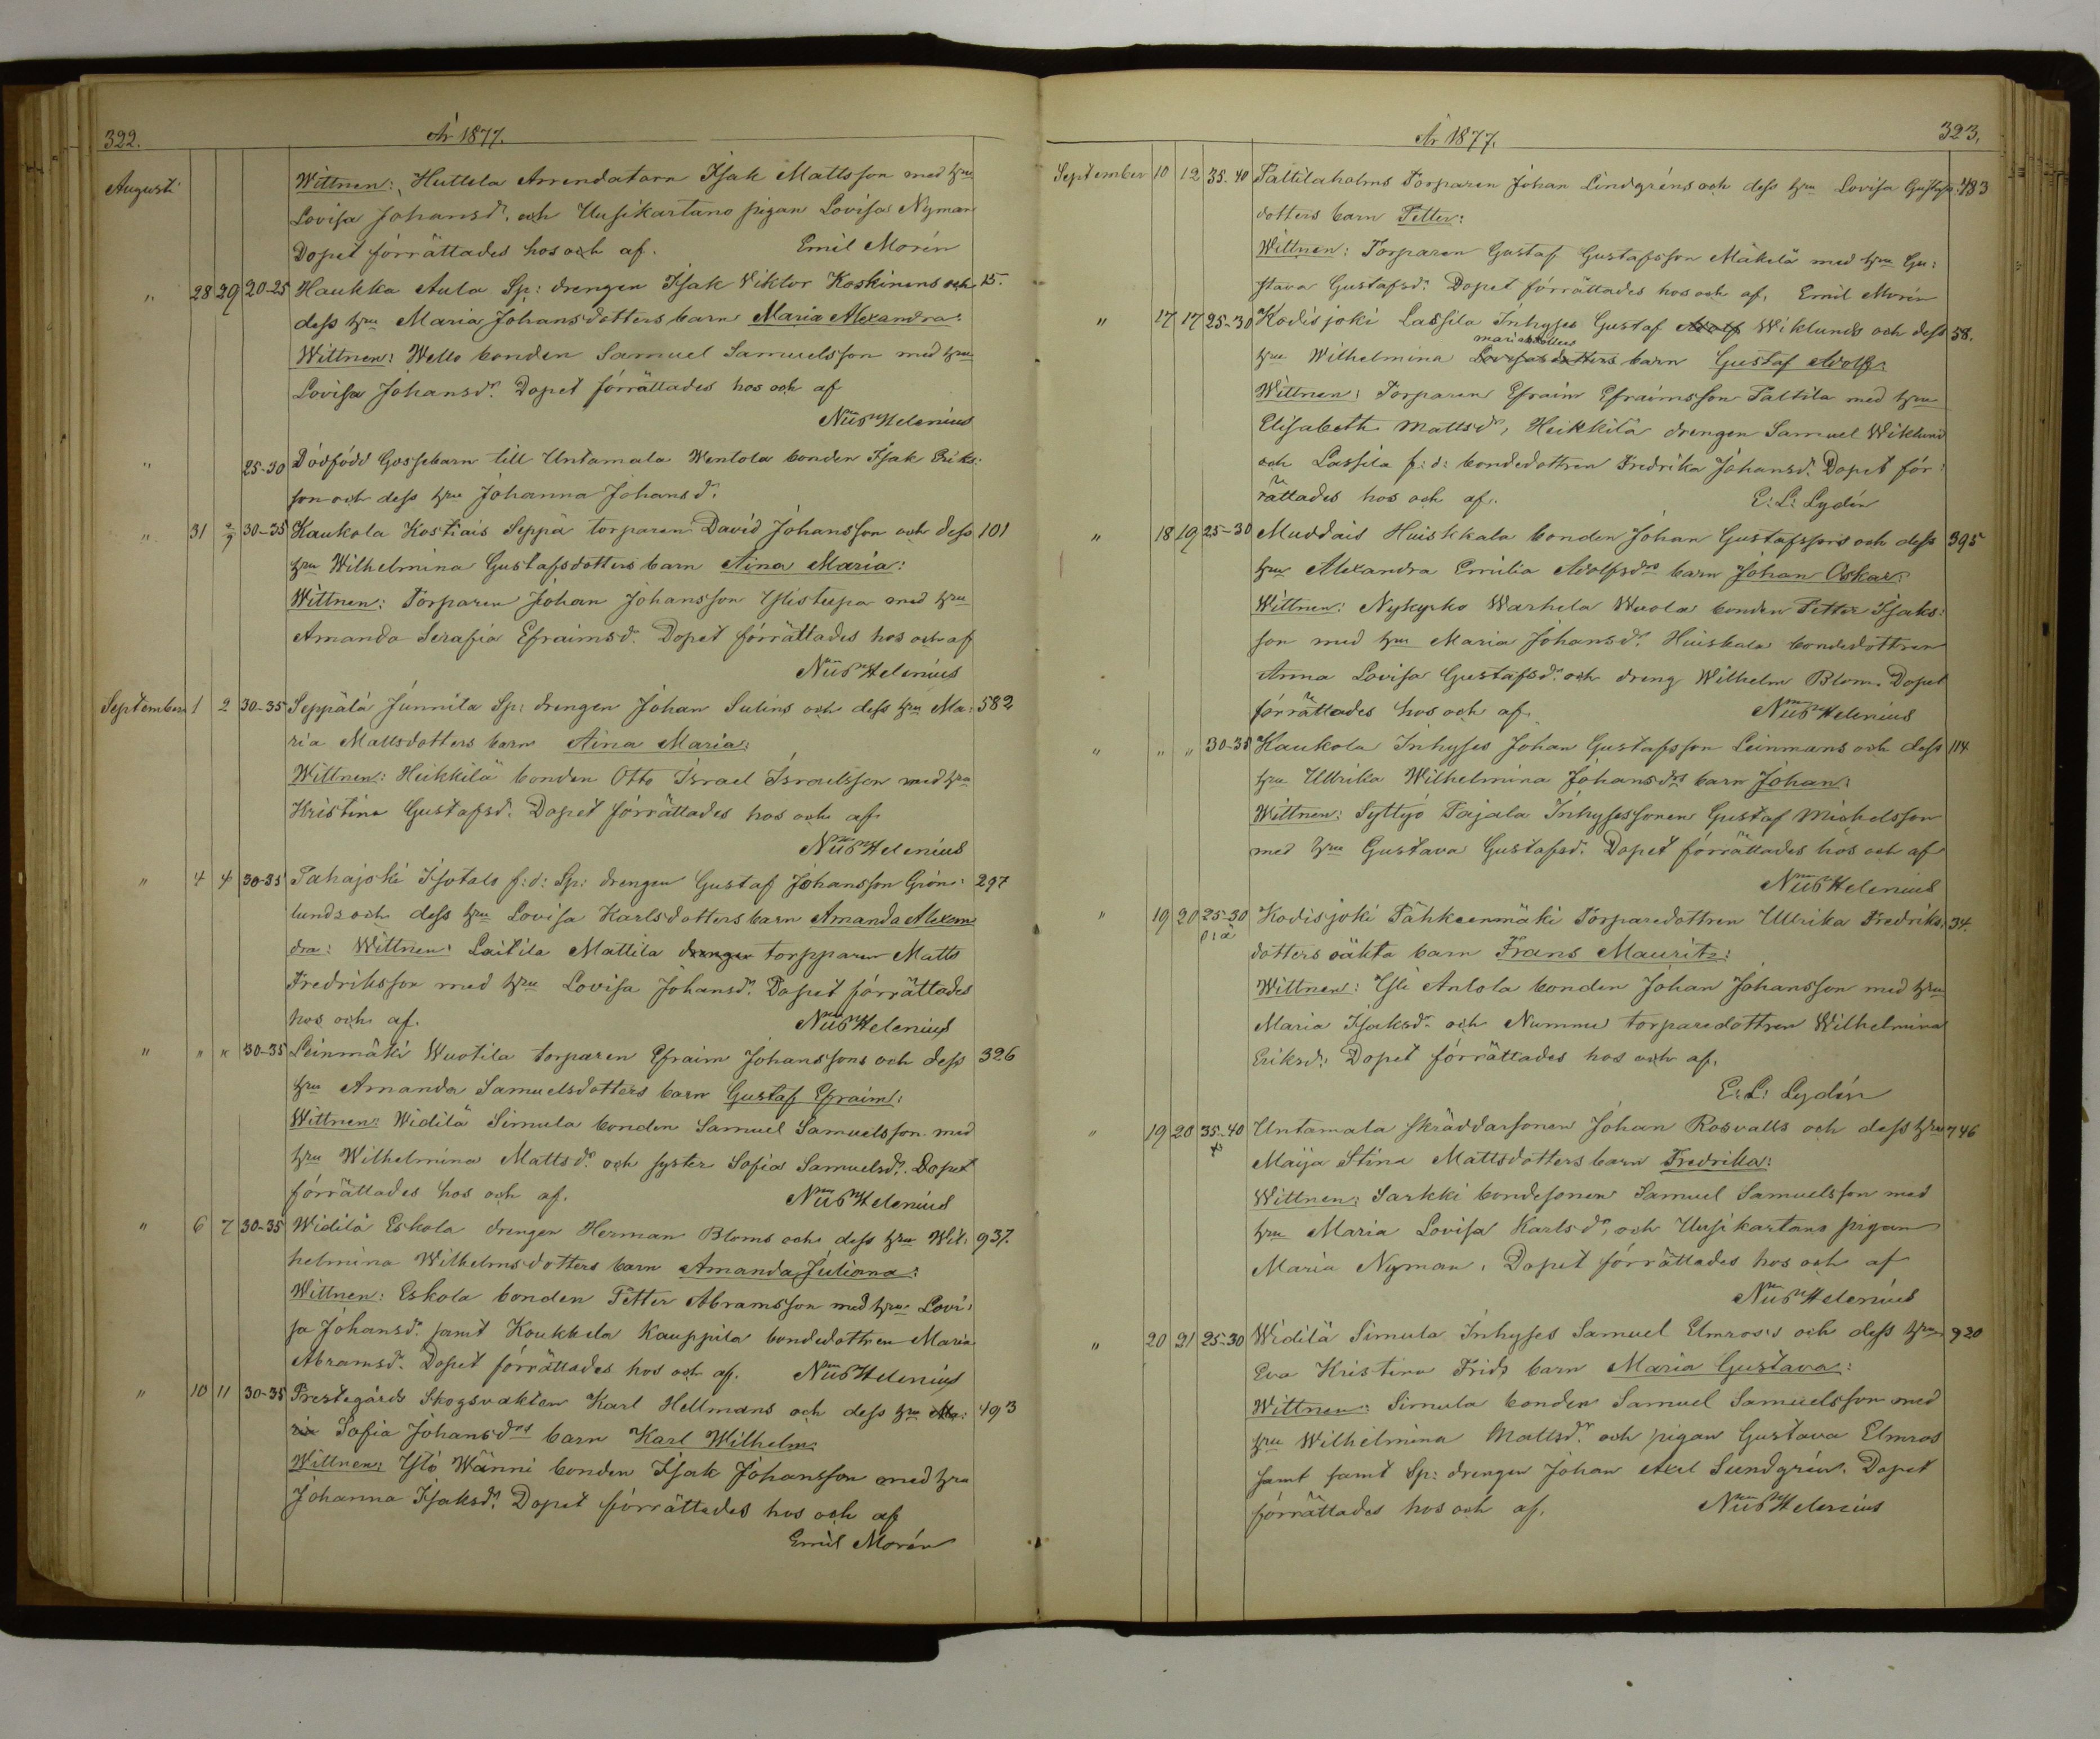 322.
År 1877.
Augusti
Wittnen: Huttela Arrendatorn Isak Mattsson med hru
Lovisa Johansdr. och Uusikartano pigan Lovisa Nyman
Dopet förrättades hos och af. Emil Morén
" 28 29 20-25 Haukka Aula Sp: drengen Isak Wiktor Koskinens och 15.
dess hru Maria Johansdotters barn Maria Alexandra:
Wittnen: Wello bonden Samuel Samuelsson med hru
Lovisa Johansdr. Dopet förrättades hos och af
Nils Helenius
" 25-30 Dödfödd Gossebarn till Untamala Wentola bonden Isak Eriks-
son och dess hru Johanna Johansdr.
" 31 2/9 30-35 Kaukola Kostiais Seppä torparen David Johansson och dess 101
hru Wilhelmina Gustafsdotters barn Aina Maria:
Wittnen: Torparen Johan Johansson Ylistupa med hru
Amanda Serafia Efraimsdr. Dopet förrättades hos och af
Nils Helenius
September 1 2 30-35 Seppälä Junnila Sp: drengen Johan Sulins och dess hru Ma: 582
ria Mattsdotters barn Aina Maria:
Wittnen: Heikkilä bonden Otto Israel Israelsson med hru
Kristina Gustafsd. Dopet förrättades hos och af
Nils Helenius
" 4 4 30-35 Pahajoki Isotalo f:d: Sp: drengen Gustaf Johansson Grön: 297
lunds och dess hru Lovisa Karlsdotters barn Amanda Alexan
dra: Wittnen: Laitila Mattila drengen torpparen Matts
Fredriksson med hru Lovisa Johansdr. Dopet förrättades
hos och af. Nils Helenius
" " " 30-35 Leinmäki Wuotila torparen Efraim Johanssons och dess 326
hru Amanda Samuelsdotters barn Gustaf Efraim:
Wittnen: Widilä Simula bonden Samuel Samuelsson med
hru Wilhelmina Mattsdr. och syster Sofia Samuelsdr. Dopet
förrättades hos och af. Nils Helenius
" 6 7 30-35 Widilä Eskola drengen Herman Bloms och dess hru Wil: 937.
helmina Wilhelmsdotters barn Amanda Juliana:
Wittnen: Eskola bonden Petter Abramsson med hru Lovi:
sa Johansdr. samt Koukkela Kauppila bondedottren Maria
Abramsdr. Dopet förrättades hos och af. Nils Helenius
" 10 11 30-35 Prestegårds Skogsvakten Karl Hellmans och dess hru Ma: 493
ria Sofia Johansdrs barn Karl Wilhelm:
Wittnen: Ylö Wänni bonden Isak Johansson med hru
Johanna Isaksdr. Dopet förrättades hos och af
Emil Morén
År 1877.
323.
September 10 12 35.40 Paltilaholms Torparen Johan Lindgréns och dess hru Lovisa Gustafs: 483
dotters barn Petter:
Wittnen: Torparen Gustaf Gustafsson Mäkelä med hru Gu:
stava Gustafsdr. Dopet förrättades hos och af. Emil Morén
" 17 17 25-30 Kodisjoki Lassila Inhyses Gustaf Adolf Wiklunds och dess 58.
mariadotters
hru Wilhelmina Lovisas dotters barn Gustaf Adolf:
Wittnen: Torparen Efraim Efraimsson Paltila med hru
Elisabeth Mattsdr, Heikkilä drengen Samuel Wiklund
och Lassila f:d: bondedottren Fredrika Johansdr. Dopet för:
rättades hos och af. E: L: Lydén
" 18 19 25-30 Muddais Huiskkala bonden Johan Gustafssons och dess 395
hru Alexandra Emilia Adolfsdrs barn Johan Oskar:
Wittnen: Nykyrko Warhela Wuola bonden Petter Isaks:
son med hru Maria Johansdr. Huiskala bondedottren
Anna Lovisa Gustafsdr. och dreng Wilhelm Blom. Dopet
förrättades hos och af. Nils Helenius
" " " 30-35 Kaukola Inhyses Johan Gustafsson Leinmans och dess 114
hru Ullrika Wilhelmina Johansdrs barn Johan:
Wittnen: Syttyö Pajala Inhysessonen Gustaf Michelsson
med hru Gustava Gustafsd. Dopet förrättades hos och af
Nils Helenius
" 19 20 25-30 Kodisjoki Pähkeenmäki Torparedottren Ullrika Fredriks: 34.
o:ä dotters oäkta barn Frans Maurits:
Wittnen: Yli Antola bonden Johan Johansson med hru
Maria Isaksdr. och Nummi torparedottren Wilhelmina
Eriksd: Dopet förrättades hos och af.
E: L: Lydén
" 19 20 35-40 Untamala skräddarsonen Johan Rosvalls och dess hru 746
Maija Stina Mattsdotters barn Fredrika:
Wittnen: Sarkki bondesonen Samuel Samuelsson med
hru Maria Lovisa Karlsdr, och Uusikartano pigan
Maria Nyman. Dopet förrättades hos och af
Nils Helenius
" 20 21 25-30 Widilä Simula Inhyses Samuel Elmros's och dess hru 920
Eva Kristina Frids barn Maria Gustava:
Wittnen: Simula bonden Samuel Samuelsson med
hru Wilhelmina Mattsdr. och pigan Gustava Elmros
samt samt Sp: drengen Johan Axel Sundgrén. Dopet
förrättades hos och af. Nils Helenius